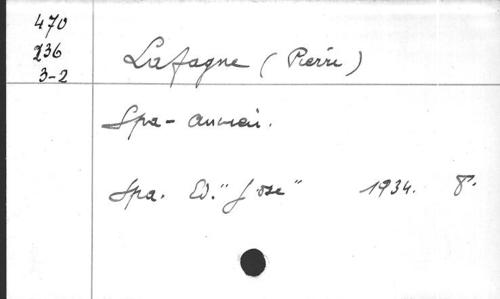 470
236
3-2
Lafagne (Pierre)
Spa-ancien.
Spa. Ed. "J-ose" 1934. 8°.